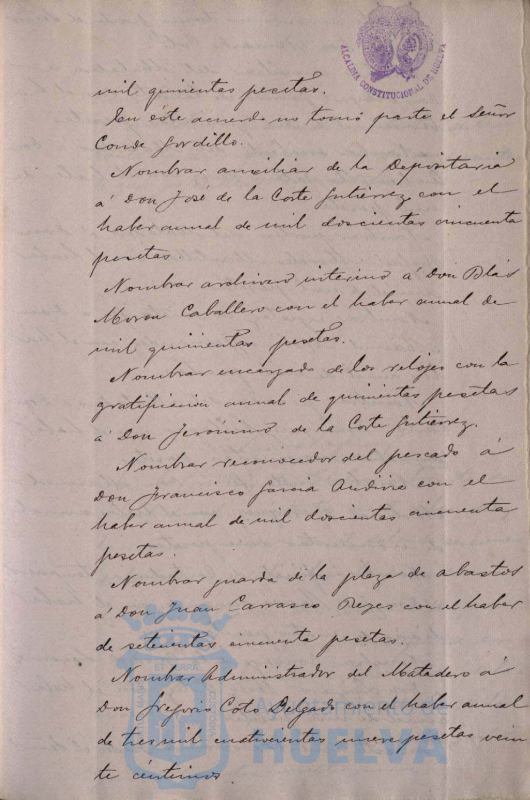 ALCALDIA CONSTITUCIONAL DE HUELVA
mil quinientas pesetas.
En éste acuerdo no tomó parte el Señor
Conde Gordillo.
Nombrar auxiliar de la Depositaria
á Don José de la Corte Gutiérrez con el
haber anual de mil doscientas cincuenta
pesetas.
Nombrar archivero interino á Don Blás
Moron Caballero con el haber anual de
mil quinientas pesetas.
Nombrar encargado de los relojes con la
gratificacion anual de quinientas pesetas
á Don Jerónimo de la Corte Gutiérrez.
Nombrar reconocedor del pescado á
Don Francisco Garcia con el
haber anual de mil doscientas cincuenta
pesetas.
Nombrar guarda de la plaza de abastos
á Don Juan Carrasco Reyes con el haber
de setecientas cincuenta pesetas.
Nombrar Administrador del Matadero á
Don Gregorio Coto Delgado con el haber anual
de tres mil cuatrocientas nueve pesetas vein
te céntimos
HUELVA